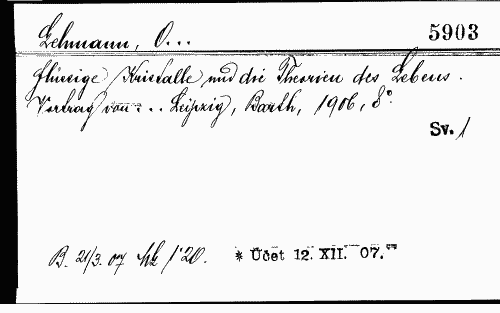 Lehmann, O...
5903
flüssige Kristalle und die Theorien des Lebens.
Vortrag von... Leipzig, Barth, 1906, 8°.
Sv. 1
B. 21/3. 07 Mk 1·20. * Účet 12. XII. 07.